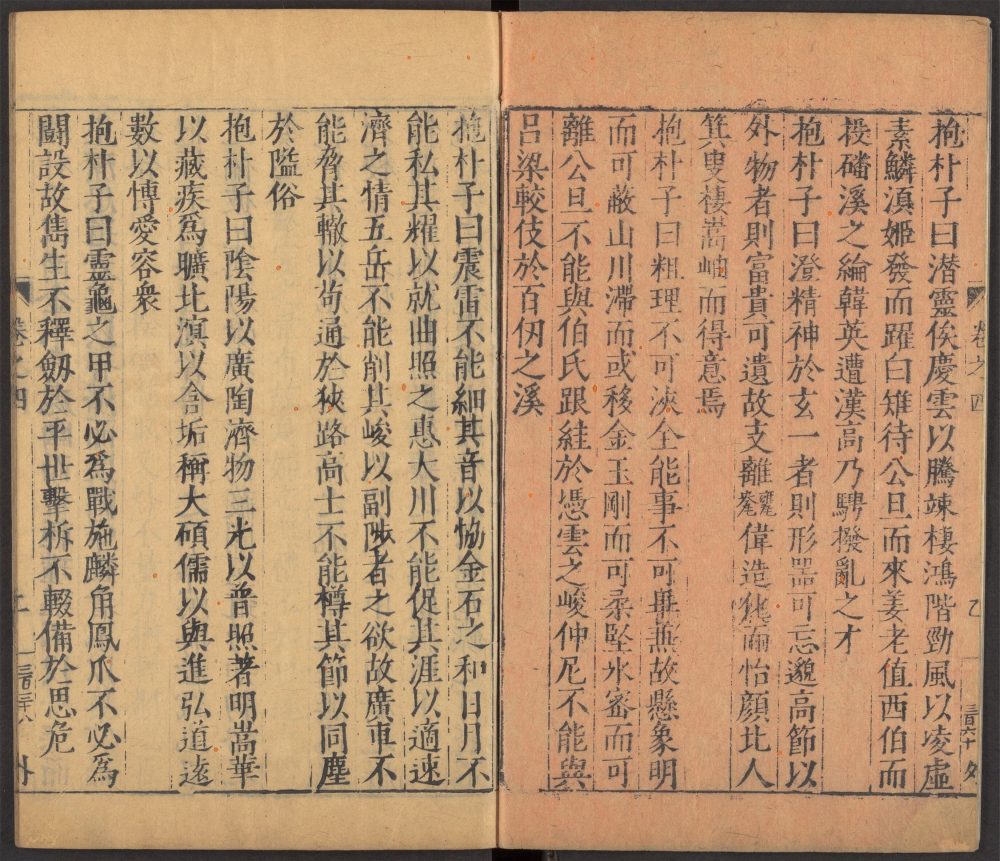 抱朴子曰潜靈俟慶雲以騰竦棲鴻階勁風以凌虛
素鱗湏姬發而躍白雉待公旦而來姜老值西伯而
投磻溪之綸韓英遭漢高乃騁撥亂之才
抱朴子曰澄精神於玄一者則形噐可忘邈高節以
外物者則富貴可遺故支離偉造而怡顏北人
箕叟棲嵩岫而得意焉
抱朴子曰粗理不可浹全能事不可畢兼故懸象明
而可蔽山川滯而或移金玉剛而可柔堅氷密而可
離公旦不能與伯氏跟絓於憑雲之峻仲尼不能與
吕梁較伎於百仞之溪
卷之四
抱朴子曰震雷不能細其音以恊金石之和日月不
能私其耀以就曲照之惠大川不能促其涯以適速
濟之情五岳不能削其峻以副陟者之欲故廣車不
能脅其轍以苟通於狹路高士不能撙其節以同塵
於隘俗
抱朴子曰陰陽以廣陶濟物三光以普照著明嵩華
以藏疾爲曠北溟以含垢稱大碩儒以與進弘道遠
數以愽愛容衆
抱朴子曰靈龜之甲不必爲戰施麟角鳳爪不必爲
鬬設故雋生不釋劔於平世擊柝不輟備於思危
卷之四